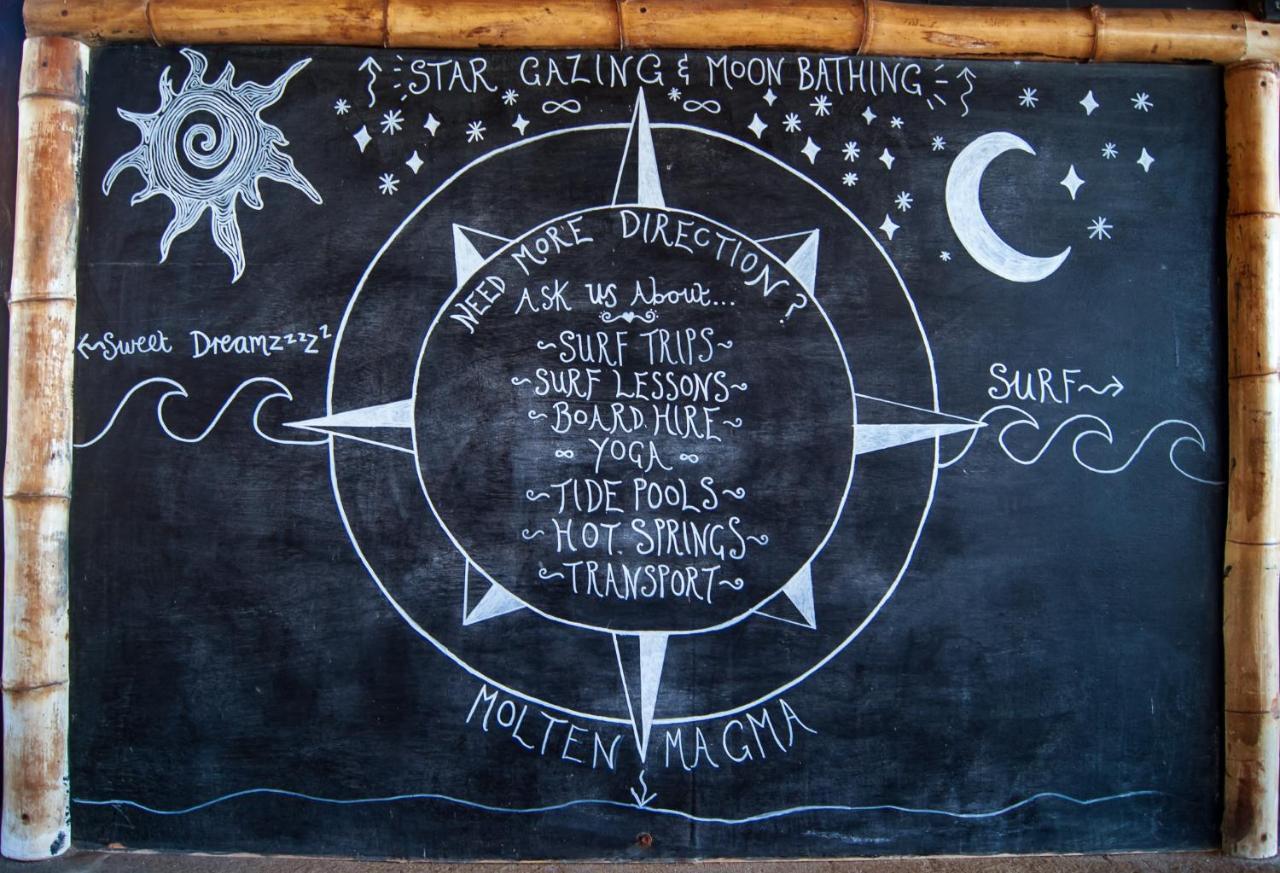 STAR GAZING & MOON BATHING
NEED MORE DIRECTION?
ASK US About...
~SURF TRIPS~
~SURF LESSONS~
~BOARD HIRE~
∞ YOGA ∞
~TIDE POOLS~
~HOT SPRINGS~
~TRANSPORT~
←Sweet Dreamzzzzz
SURF→
MOLTEN MAGMA